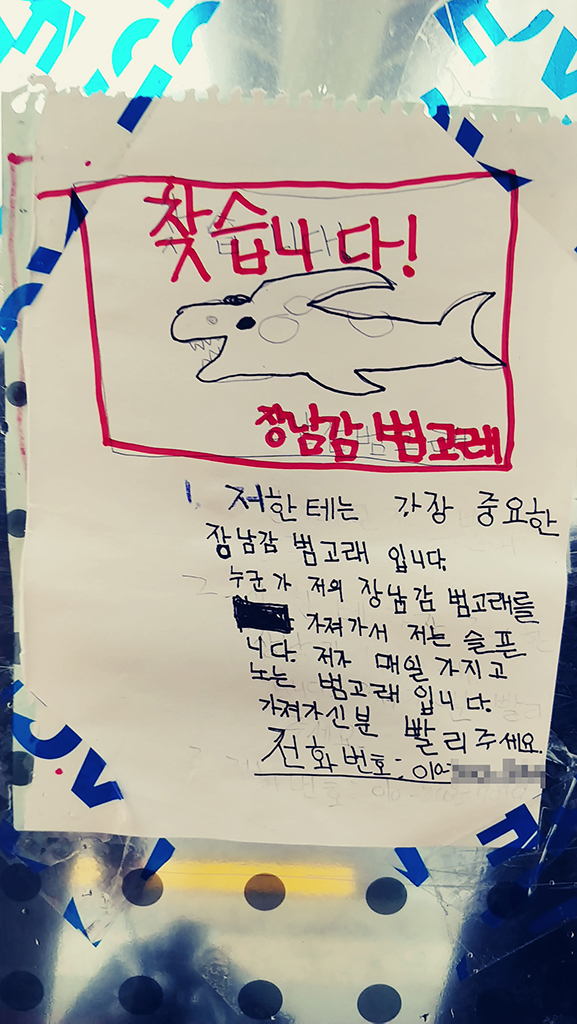 찾습니다!
장남감 범고래
1. 저한테는 가장 중요한
장남감 범고래 입니다.
누군가 저의 장남감 범고래를
가져가서 저는 슬픈
니다. 저가 매일 가지고
노는 범고래 입니다.
가져가신분 빨리주세요.
전화번호: 010-